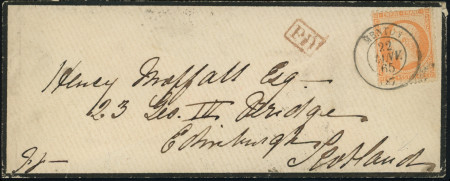 MENTON
P.D.
22
JANV.
65
Henry Moffatt Esq
23 Geo. IV Bridge
Edinburgh
Scotland